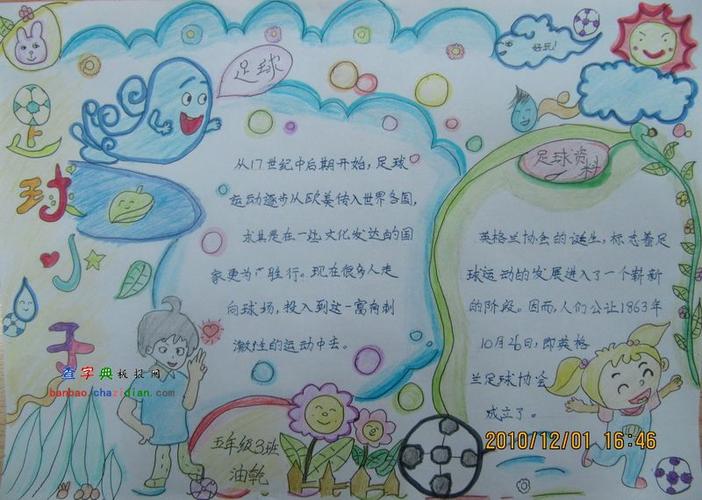 足球小子
足球
好玩！
从17世纪中后期开始，足球
运动逐步从欧美传入世界各国，
尤其是在一些文化发达的国
家更为广胜行。现在很多人走
向球场，投入到这一富有刺
激性的运动中去。
足球资料
英格兰协会的诞生，标志着足
球运动的发展进入了一个崭新
的阶段。因而，人们公认1863年
10月26日，即英格
兰足球协会
成立了。
五年级3班
查字典板报网
banbao.chazidian.com
2010/12/01 16:46